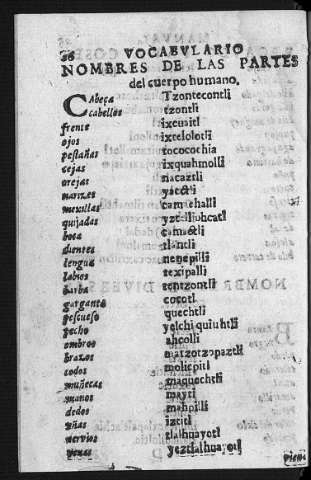 36 VOCABVLARIO
NOMBRES DE LAS PARTES
del cuerpo humano.
CAbeça Tzontecontli
cabellos tzontli
frente ixcuaitl
ojos ixtelolotli
pestañas tocochia
cejas ixquahmolli
orejas nacaztli
narizes yacatl
mexillas camachalli
quijadas
boca camactli
dientes tlantli
lengua nenepilli
labios texipalli
barba tentzontli
garganta cocotl
pescueso quechtli
pecho yelchiquiuhtli
ombros ahcolli
brazos matzotzopaztli
codos molicpitl
muñecas maquechtli
manos maytl
dedos mahpilli
uñas iztitl
nervios tlalhuayotl
venas yeztlalhuayotl